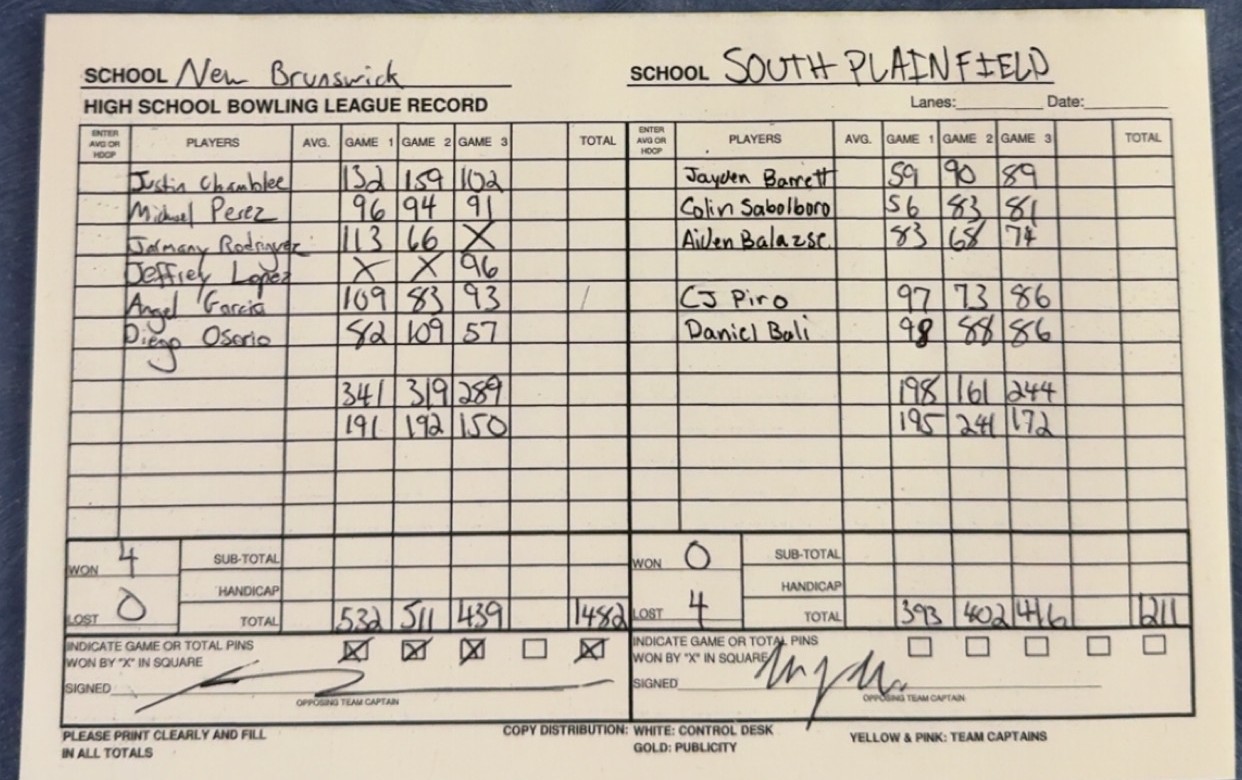 SCHOOL New Brunswick
SCHOOL SOUTH PLAINFIELD
HIGH SCHOOL BOWLING LEAGUE RECORD
Lanes: Date:
ENTER AVG OR HDCP PLAYERS AVG. GAME 1 GAME 2 GAME 3 TOTAL ENTER AVG OR HDCP PLAYERS AVG. GAME 1 GAME 2 GAME 3 TOTAL
Justin Chamblee 132 159 102 Jayden Barrett 59 90 89
Michael Perez 96 94 91 Colin Sabolboro 56 83 81
Rodriguez 113 66 X Aiden Balazsc. 83 68 74
Jeffrey Lopez X X 96
Angel Garcia 109 83 93 CJ Piro 97 73 86
Diego Osorio 82 109 57 Daniel Bali 98 88 86
341 319 289 198 161 244
191 192 150 195 241 172
WON 4 SUB-TOTAL WON 0 SUB-TOTAL
HANDICAP HANDICAP
LOST 0 TOTAL 532 511 439 1482 LOST 4 TOTAL 393 402 416 1211
INDICATE GAME OR TOTAL PINS
WON BY "X" IN SQUARE X X X X
INDICATE GAME OR TOTAL PINS
WON BY "X" IN SQUARE
SIGNED
OPPOSING TEAM CAPTAIN
SIGNED
OPPOSING TEAM CAPTAIN
PLEASE PRINT CLEARLY AND FILL
IN ALL TOTALS
COPY DISTRIBUTION: WHITE: CONTROL DESK
GOLD: PUBLICITY
YELLOW & PINK: TEAM CAPTAINS